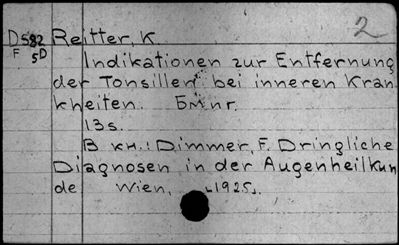 2
D582 Reitter, K.
F 5D
Indikationen zur Entfernung
der Tonsillen bei inneren Kran
kheiten. Бм nr.
13s.
В кн.: Dimmer, F. Dringliche
Diagnosen in der Augenheilkun
de Wien, 1925.